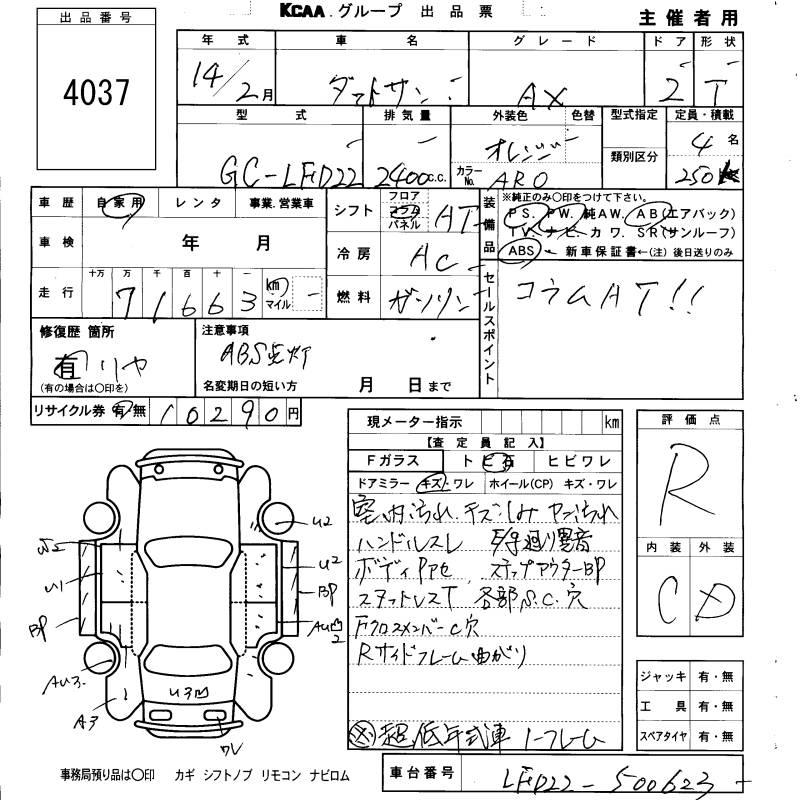 KCAA.グループ 出品票
主催者用
出品番号
4037
年式 車名 グレード ドア 形状
14/2月 ダットサン AX 2 T
型式 排気量 外装色 色替 型式指定 定員・積載
GC-LFD22 2400c.c. オレンジ 類別区分 4名
カラーNo. ARO 250
車歴 自家用 レンタ 事業.営業車
シフト フロア コラム パネル AT
装備品
※純正のみ○印をつけて下さい。
PS. PW. 純AW. AB(エアバック)
TV. ナビ. カワ. SR(サンルーフ)
ABS 新車保証書←(注)後日送りのみ
車検 年 月
冷房 AC
走行 十万 万 千 百 十 一 km マイル
71663
燃料 ガソリン
セールスポイント
コラムAT!!
修復歴 箇所
有 リヤ
(有の場合は○印を)
注意事項
ABS点灯
名変期日の短い方 月 日まで
リサイクル券 有・無 10290円
現メーター指示 km
【査定員記入】
Fガラス トビ石 ヒビワレ
ドアミラー キズ・ワレ ホイール(CP) キズ・ワレ
室内汚れ.キズ.しみ ヤニ汚れ
ハンドルスレ 異音
ボディPアセ ステップアウターBP
スタットレスT 各部S.C.穴
FクロスメンバーC穴
Rサイドフレーム曲がり
超低年式車 フレーム
評価点
R
内装 外装
C D
ジャッキ 有・無
工具 有・無
スペアタイヤ 有・無
U2
U2
U1
U2
BP
BP
AU凹2
AU3
A3
U3凹
ワレ
事務局預り品は○印 カギ シフトノブ リモコン ナビロム
車台番号 LFD22-500623